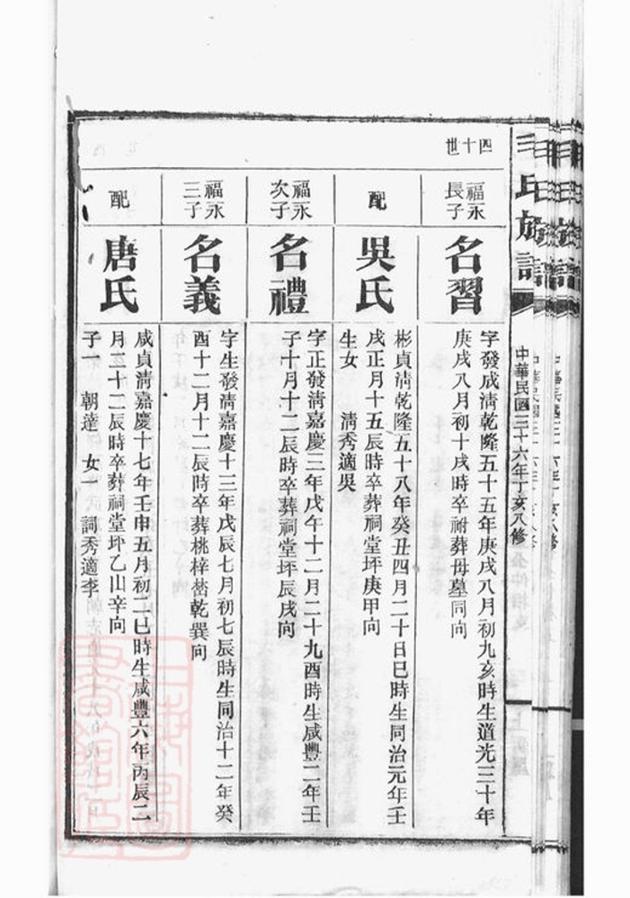 毛氏族譜
中華民國三十六年丁亥八修
四十世
福永長子
名習
字發成清乾隆五十五年庚戌八月初九亥時生道光三十年
庚戌八月初十戌時卒祔葬母墓同向
配
吳氏
彬貞清乾隆五十八年癸丑四月二十日巳時生同治元年壬
戌正月十五辰時卒葬祠堂坪庚甲向
生女 清秀適吳
福永次子
名禮
字正發清嘉慶三年戊午十二月二十九酉時生咸豐二年壬
子十月十二辰時卒葬祠堂坪辰戌向
福永三子
名義
字生發清嘉慶十三年戊辰七月初七辰時生同治十二年癸
酉十二月十二辰時卒葬桃梓乾巽向
配
唐氏
咸貞清嘉慶十七年壬申五月初二巳時生咸豐六年丙辰二
月三十二辰時卒葬祠堂坪乙山辛向
子一 朝達 女一 詞秀適李